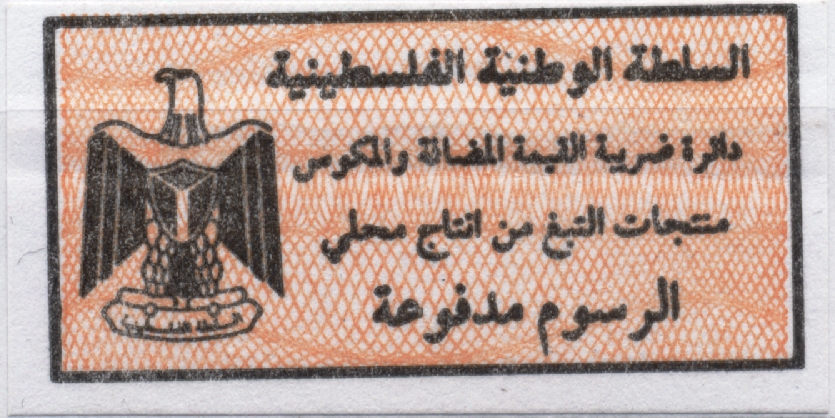 السلطة الوطنية الفلسطينية
دائرة ضريبة القيمة المضافة والمكوس
منتجات التبغ من انتاج محلي
الرسوم مدفوعة
السلطة الفلسطينية